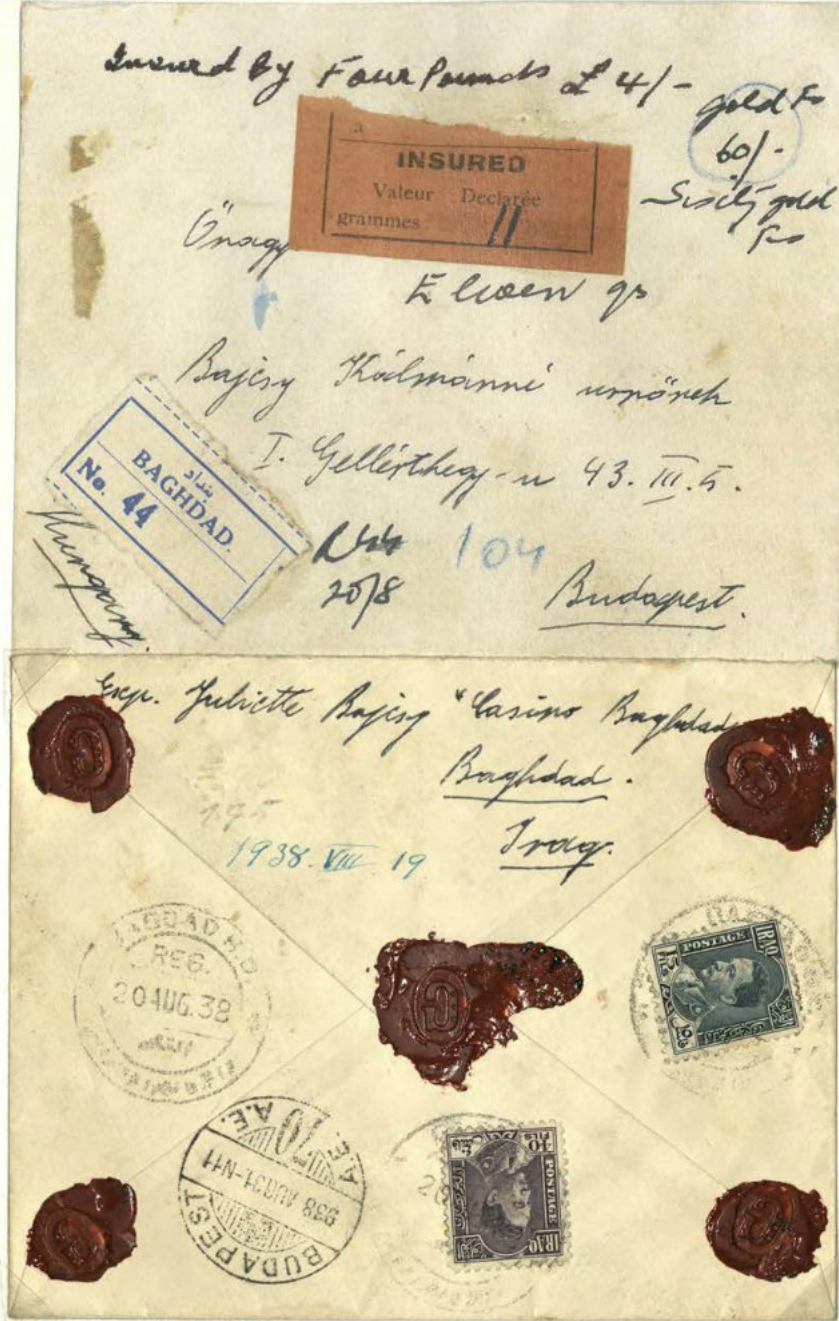 Insured by Four Pounds £ 4/-
gold Fs
60/-
Sixty gold
Fs
INSURED
Valeur Declarée
grammes 11
Önagy
gs
Bajcsy Kálmánné
I. Gellérthegy-u 43. III. 5.
بغداد
BAGHDAD.
No. 44
Hungary.
20/8
104
Budapest.
Exp. Juliette Bajcsy "Casino Baghdad
Baghdad.
Iraq.
195
1938. VIII 19
REG.
20 AUG. 38
POSTAGE IRAQ
15
BUDAPEST 70
A.E. A.E.
938 AUG 31-N11
40
FILS
POSTAGE
IRAQ